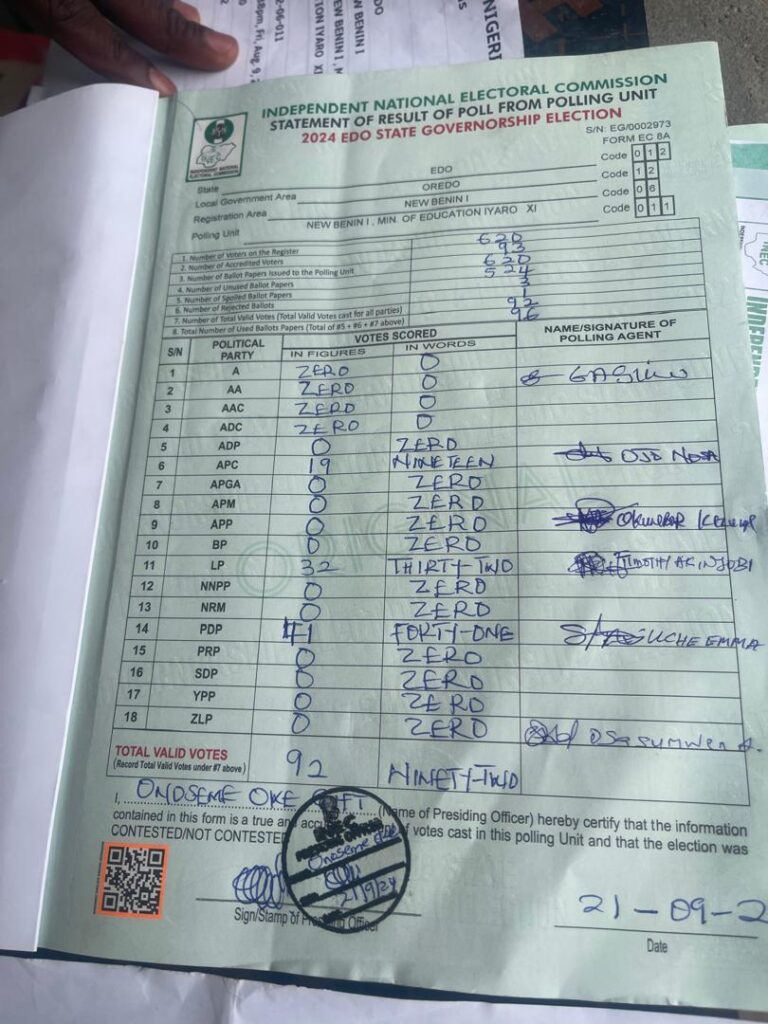 NIGERI
EDO
NEW BENIN I
INDEPENDENT NATIONAL ELECTORAL COMMISSION
STATEMENT OF RESULT OF POLL FROM POLLING UNIT
2024 EDO STATE GOVERNORSHIP ELECTION
S/N: EG/0002973
FORM EC 8A
INEC
INDEPENDENT NATIONAL ELECTORAL COMMISSION
State EDO Code 0 1 2
Local Government Area OREDO Code 1 2
Registration Area NEW BENIN I Code 0 6
Polling Unit NEW BENIN I . MIN. OF EDUCATION IYARO XI Code 0 1 1
1. Number of Voters on the Register 620
2. Number of Accredited Voters 93
3. Number of Ballot Papers Issued to the Polling Unit 620
4. Number of Unused Ballot Papers 524
5. Number of Spoiled Ballot Papers 3
6. Number of Rejected Ballots 1
7. Number of Total Valid Votes (Total Valid Votes cast for all parties) 92
8. Total Number of Used Ballots Papers (Total of #5 + #6 + #7 above) 96
S/N POLITICAL PARTY VOTES SCORED NAME/SIGNATURE OF POLLING AGENT
IN FIGURES IN WORDS
1 A ZERO 0
2 AA ZERO 0
3 AAC ZERO 0
4 ADC ZERO 0
5 ADP 0 ZERO
6 APC 19 NINETEEN OJO NOSA
7 APGA 0 ZERO
8 APM 0 ZERO
9 APP 0 ZERO
10 BP 0 ZERO
11 LP 32 THIRTY-TWO TIMOTHY AKINJOBI
12 NNPP 0 ZERO
13 NRM 0 ZERO
14 PDP 41 FORTY-ONE UCHE EMMA
15 PRP 0 ZERO
16 SDP 0 ZERO
17 YPP 0 ZERO
18 ZLP 0 ZERO
TOTAL VALID VOTES
(Record Total Valid Votes under #7 above) 92 NINETY-TWO
ORIGINAL
I, ONOSEME OKE (Name of Presiding Officer) hereby certify that the information
contained in this form is a true and of votes cast in this polling Unit and that the election was
CONTESTED/NOT CONTESTED
Onoseme
21/9/24
Sign/Stamp of Officer
21-09-2
Date